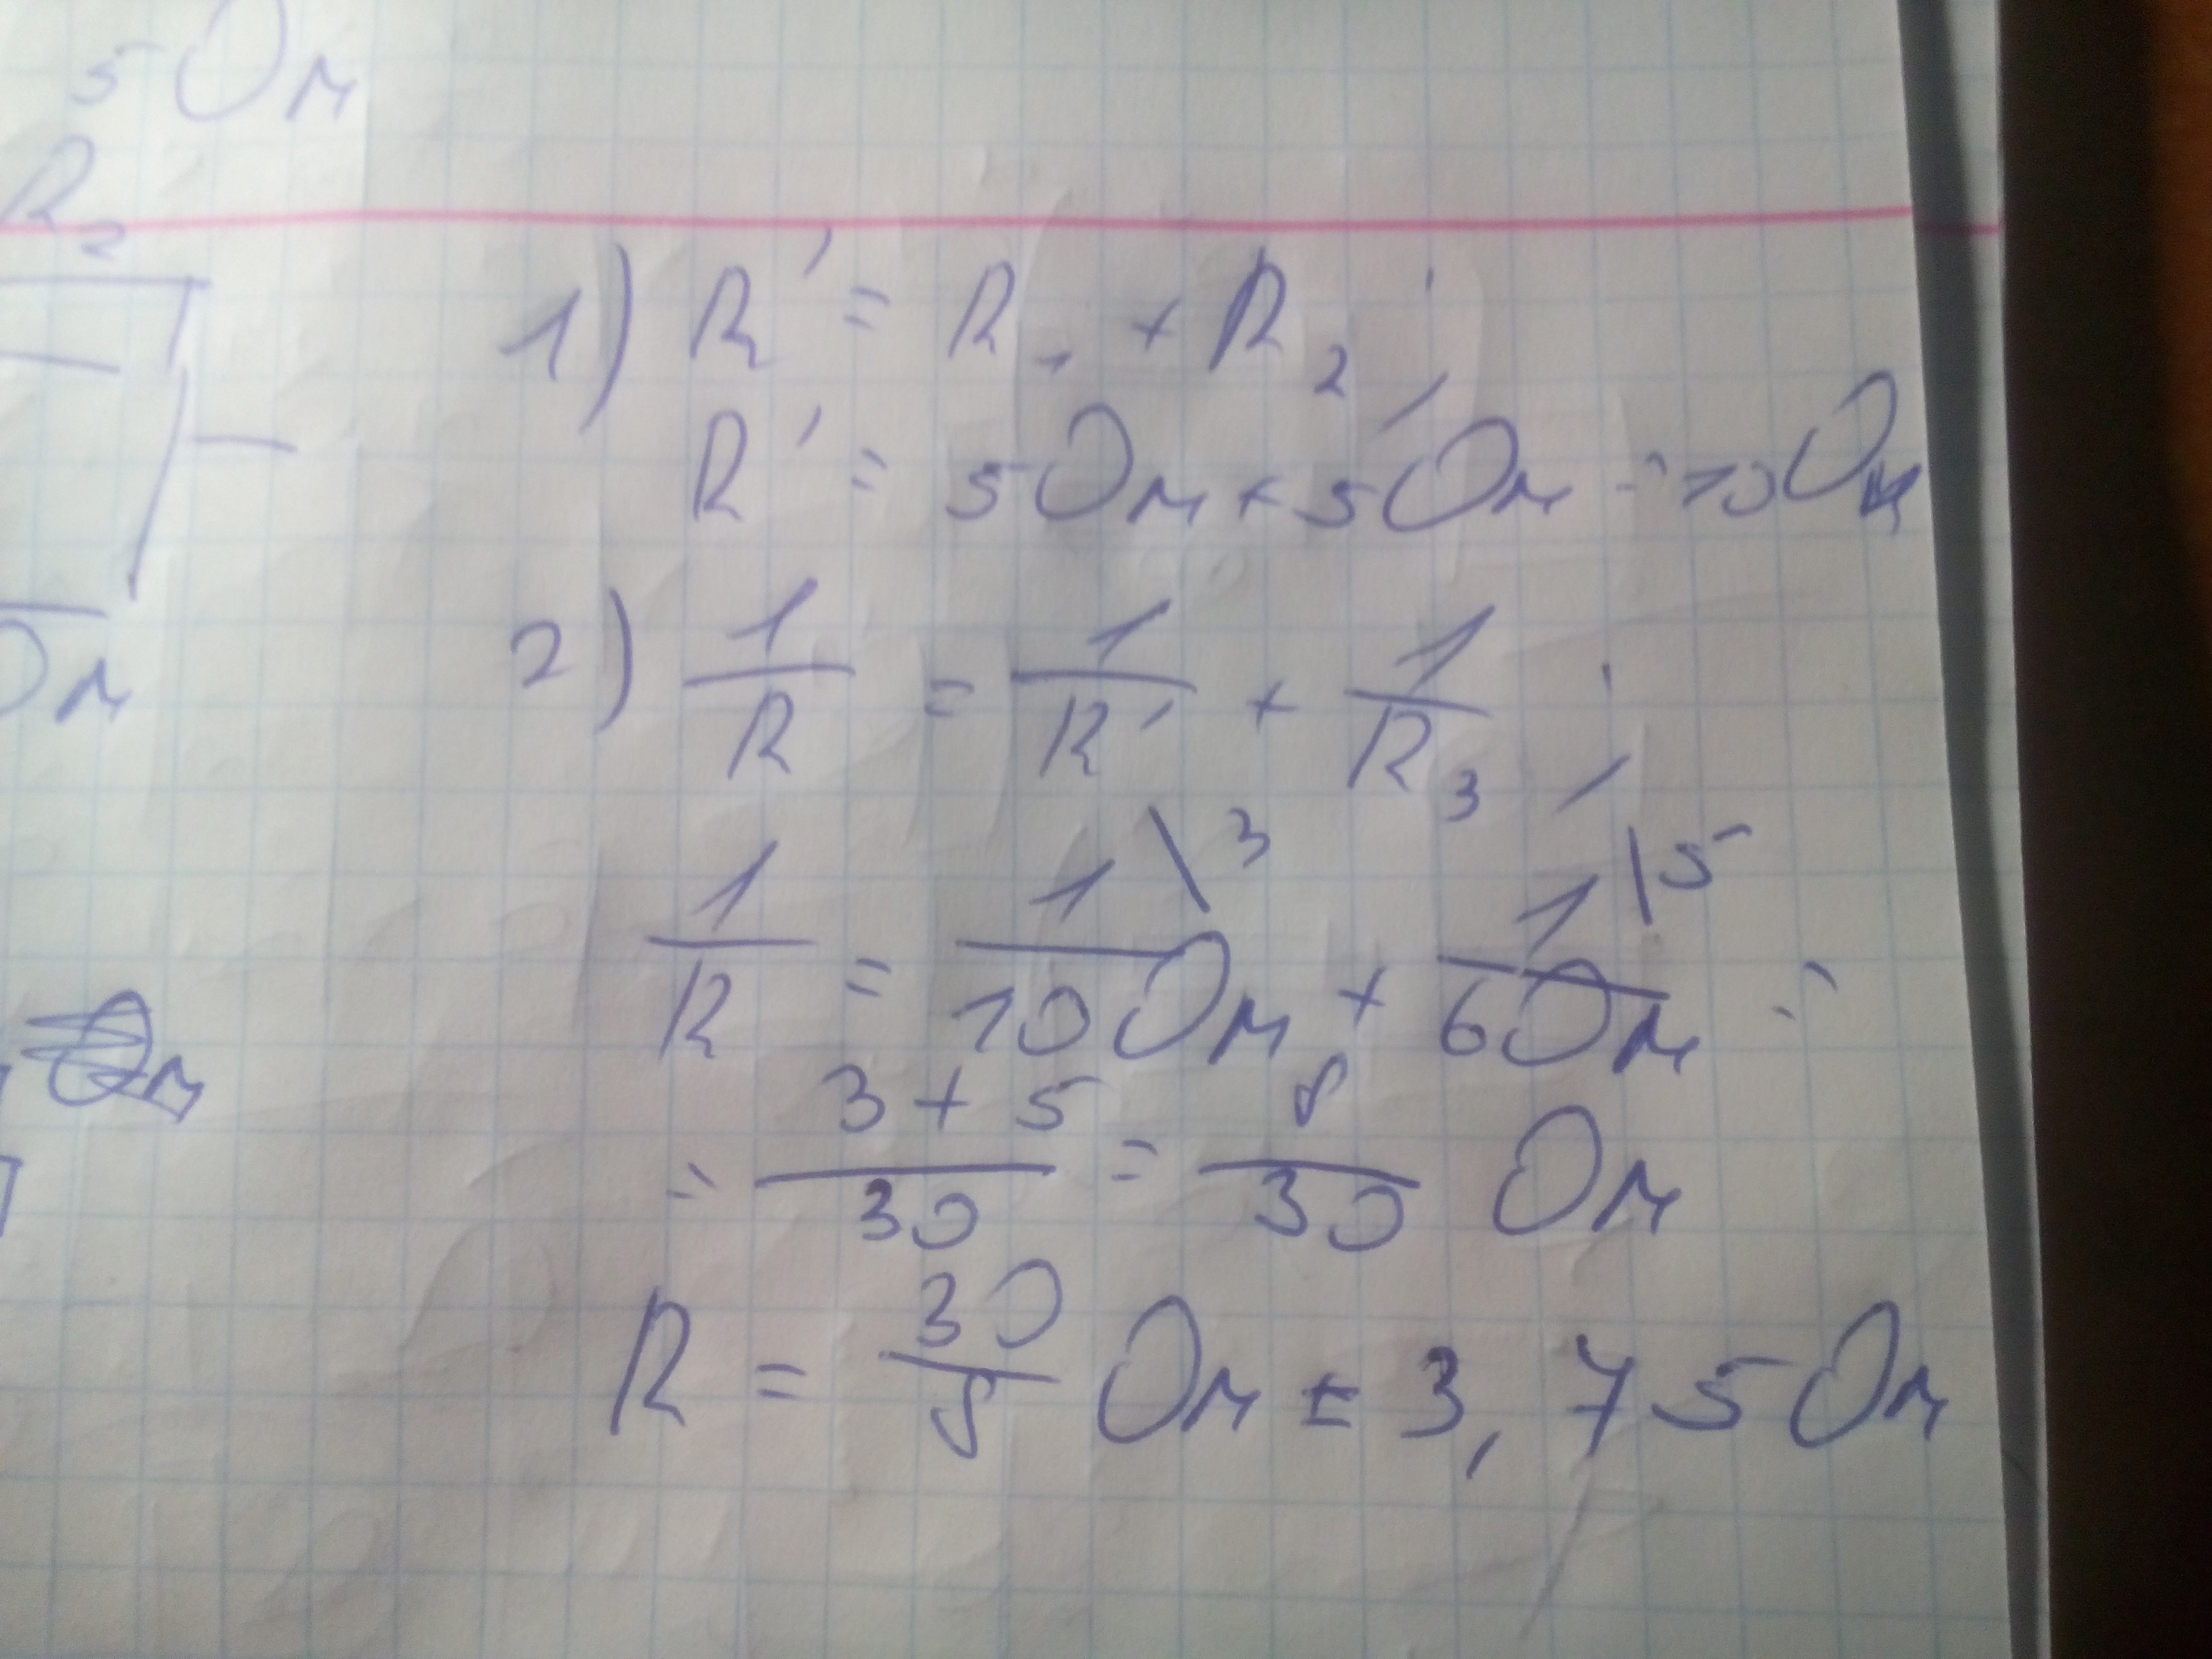 5 Ом
R₂
1) R' = R₁ + R₂ ;
R' = 5 Ом + 5 Ом = 10 Ом
Ом
2) 1/R = 1/R' + 1/R₃ ;
1/R = 1\3/10 Ом + 1\5/6 Ом =
Ом
= 3 + 5/30 = 8/30 Ом
R = 30/8 Ом = 3,75 Ом